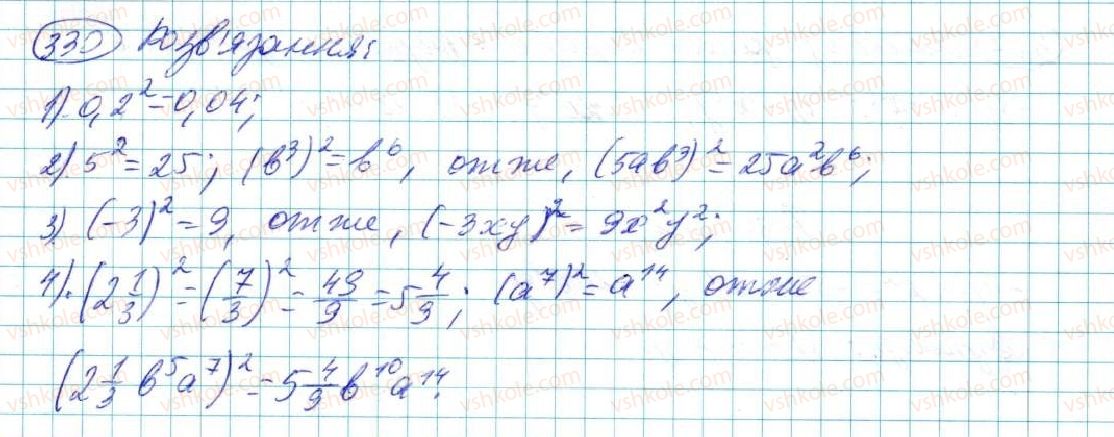 330 Розв'язання:
1) 0,2² = 0,04;
2) 5² = 25; (b³)² = b⁶, отже, (5ab³)² = 25a²b⁶;
3) (-3)² = 9, отже, (-3xy)² = 9x²y²;
4) (2 1/3)² = (7/3)² = 49/9 = 5 4/9; (a⁷)² = a¹⁴, отже
(2 1/3 b⁵a⁷)² = 5 4/9 b¹⁰a¹⁴.